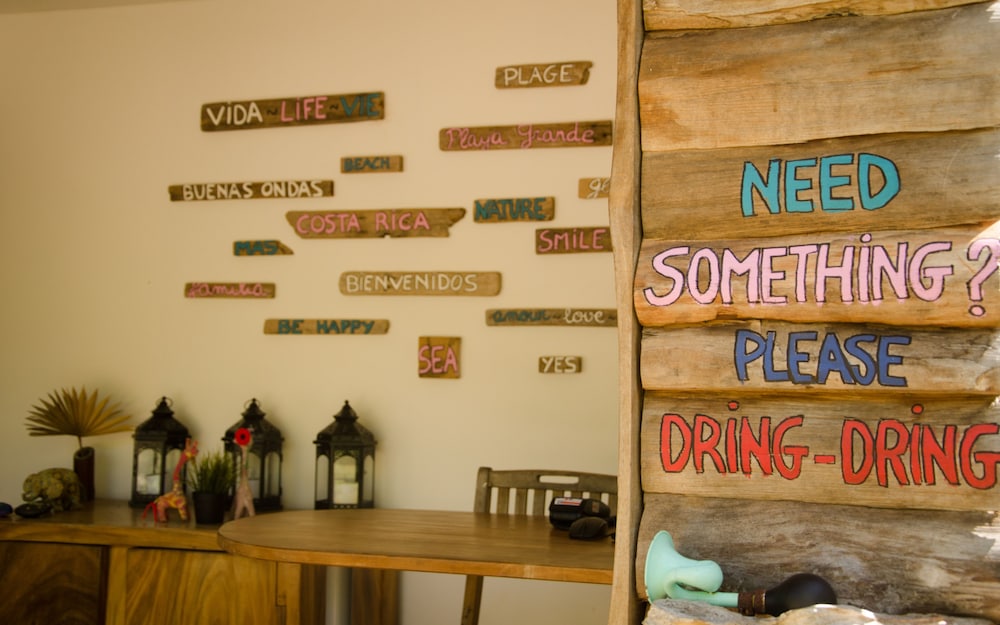 PLAGE
VIDA ~ LIFE ~ VIE
Playa Grande
BEACH
BUENAS ONDAS
NATURE
COSTA RICA
SMILE
MAS
BIENVENIDOS
familia
amour ~ love
BE HAPPY
SEA
YES
NEED
SOMETHING?
PLEASE
DRING-DRING